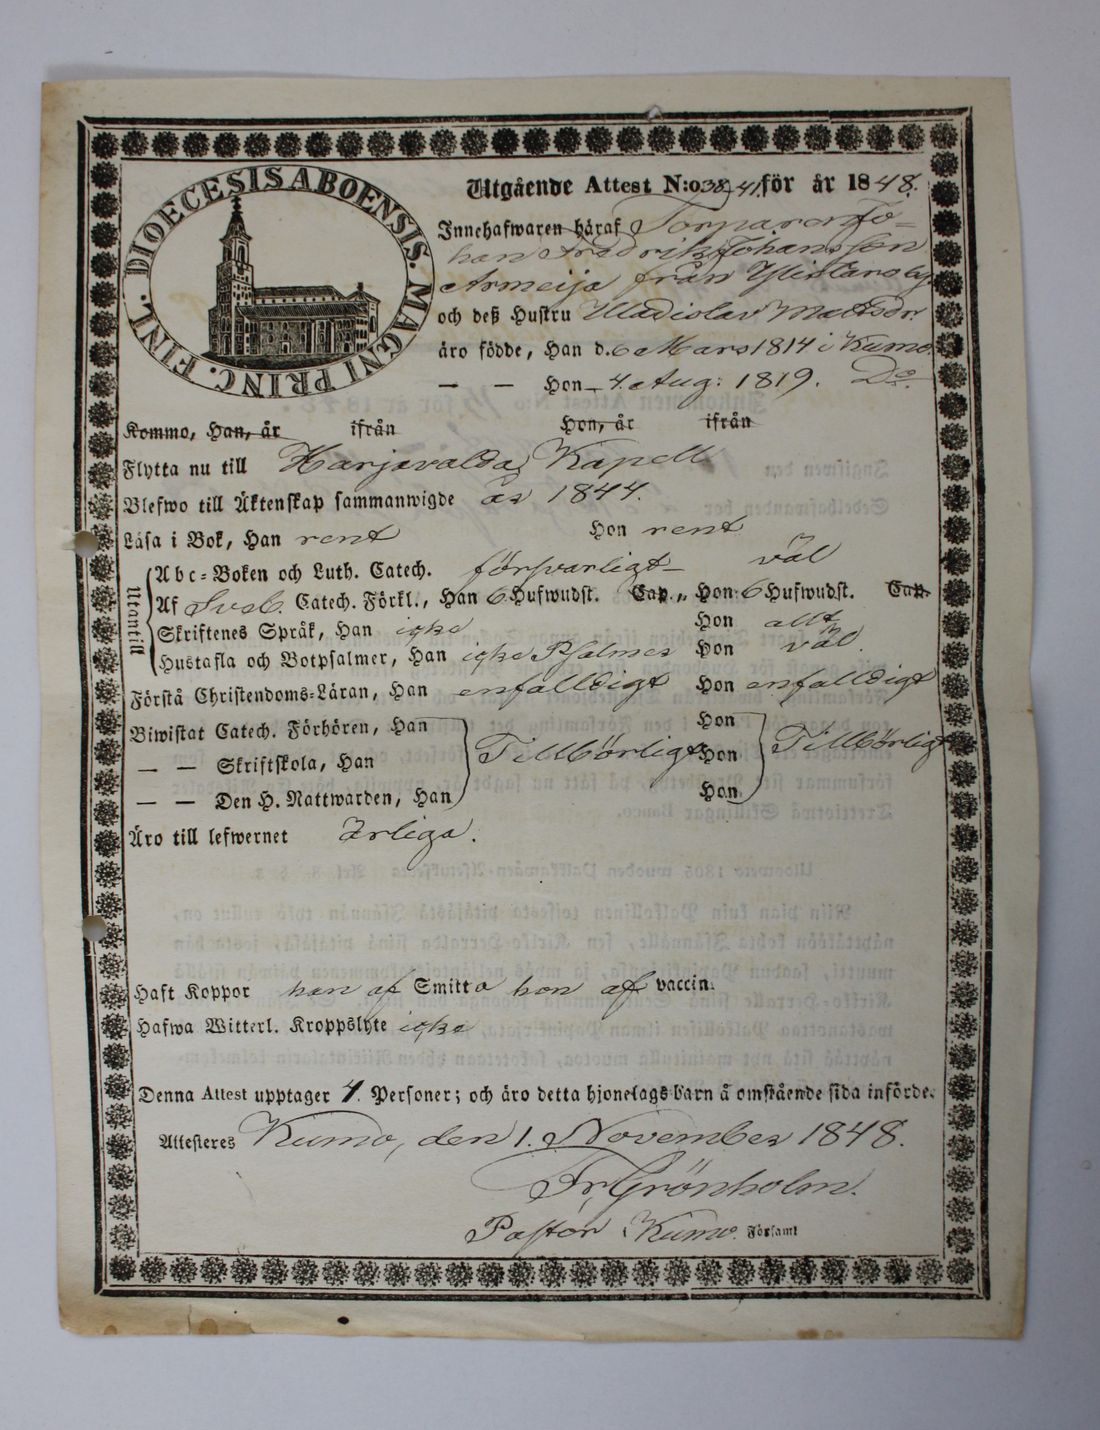 DIOECESIS ABOENSIS. MAGNI PRINC. FINL.
Utgående Attest N:o 38-41. för år 1848.
Innehafwaren häraf Torparen Jo-
han Fredrik Johansson
Armeija från Ylistaro by
och deß Hustru Uladislav Matsdr.
äro födde, Han d. 6 Mars 1814 i Kumo.
— — Hon – 4. Aug: 1819. Do.
Kommo, Han, år ifrån Hon, år ifrån
Flytta nu till Harjavalda Kapell
Blefwo till Äktenskap sammanwigde år 1844.
Läsa i Bok, Han rent Hon rent
Utantill
Abc-Boken och Luth. Catech. försvarligt – väl
Af Sveb. Catech. Förkl., Han 6 Hufwudst. Cap. „ Hon 6 Hufwudst. Cap.
Skriftenes Språk, Han icke Hon allt
Hustafla och Botpsalmer, Han icke Psalmer Hon väl.
Förstå Christendoms-Läran, Han enfalldigt Hon enfalldigt
Biwistat Catech. Förhören, Han Hon
— — Skriftskola, Han Tillbörligt Hon Tillbörligt
— — Den H. Nattwarden, Han Hon
Äro till lefwernet ärliga.
Haft Koppor han af Smitta hon af vaccin.
Hafwa Witterl. Kroppslyte icke
Denna Attest upptager 4. Personer; och äro detta hjonelags barn å omstående sida införde.
Attesteres Kumo, den 1. November 1848.
Fr. Grönholm.
Pastor i Kumo. Församl